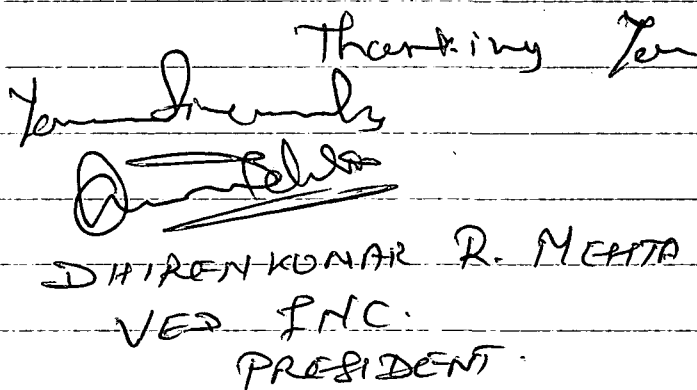 Thanking You
Yours Sincerely
DHIRENKUMAR R. MEHTA
VED INC.
PRESIDENT.